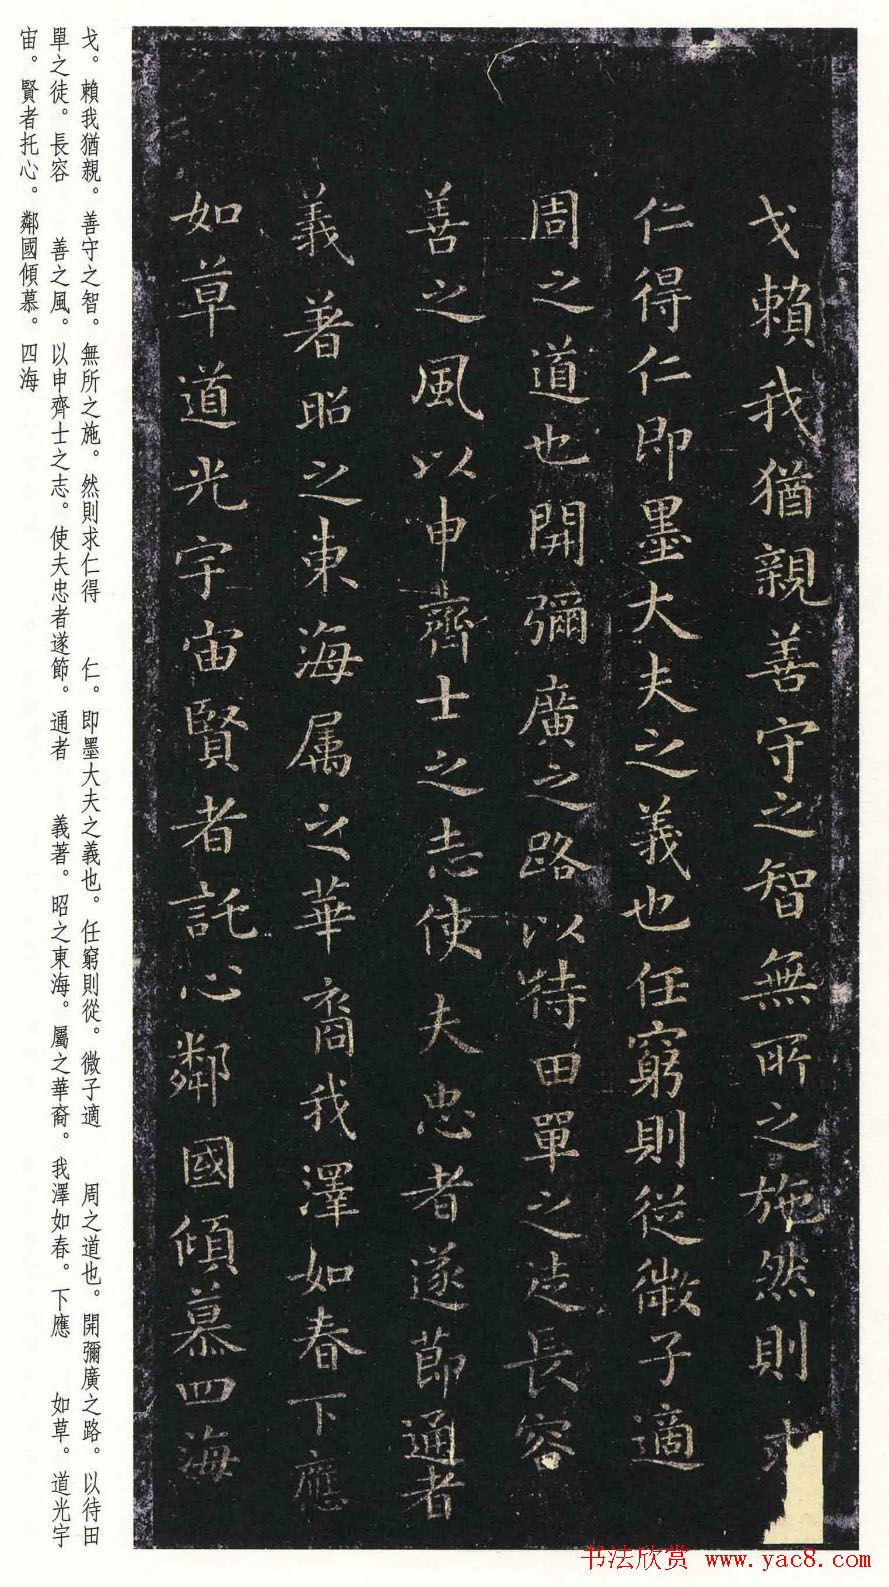 戈賴我猶親善守之智無所之施然則求
仁得仁即墨大夫之義也任窮則從微子適
周之道也開彌廣之路以待田單之徒長容
善之風以申齊士之志使夫忠者遂節通者
義著昭之東海属之華裔我澤如春下應
如草道光宇宙賢者託心鄰國傾慕四海
戈。賴我猶親。善守之智。無所之施。然則求仁得 仁。即墨大夫之義也。任窮則從。微子適 周之道也。開彌廣之路。以待田
單之徒。長容 善之風。以申齊士之志。使夫忠者遂節。通者 義著。昭之東海。屬之華裔。我澤如春。下應 如草。道光宇
宙。賢者托心。鄰國傾慕。四海
书法欣赏 www.yac8.com